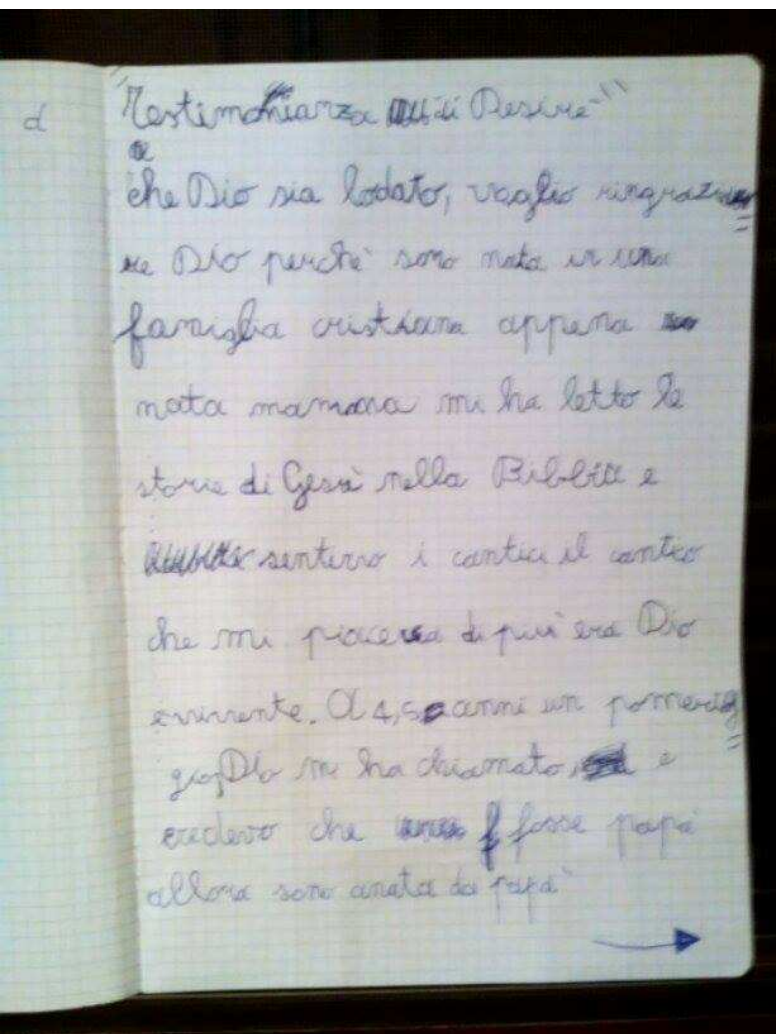 d
"Testimonianza di Desirè"
che Dio sia lodato, voglio ringrazia=
re Dio perchè sono nata in una
famiglia cristiana appena
nata mamma mi ha letto le
storie di Gesù nella Bibbia e
sentivo i cantici il cantico
che mi piaceva di più era Dio
è vivente. A 4,5 anni un pomerig=
gio, Dio mi ha chiamato, e
credevo che fosse papà
allora sono andata da papà